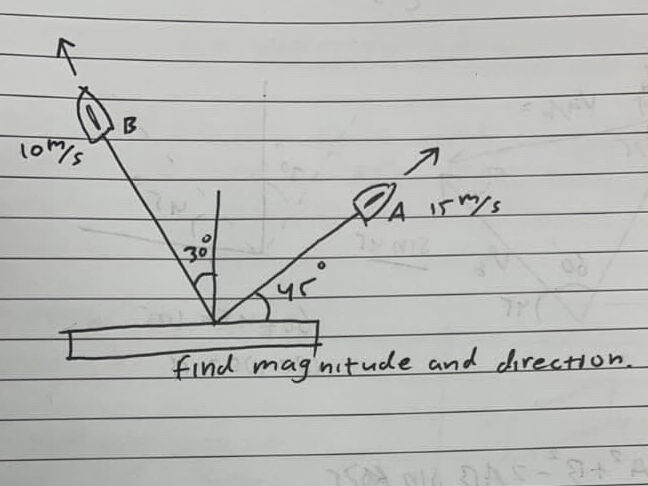 B
10 m/s
A 15 m/s
30°
45°
find magnitude and direction.